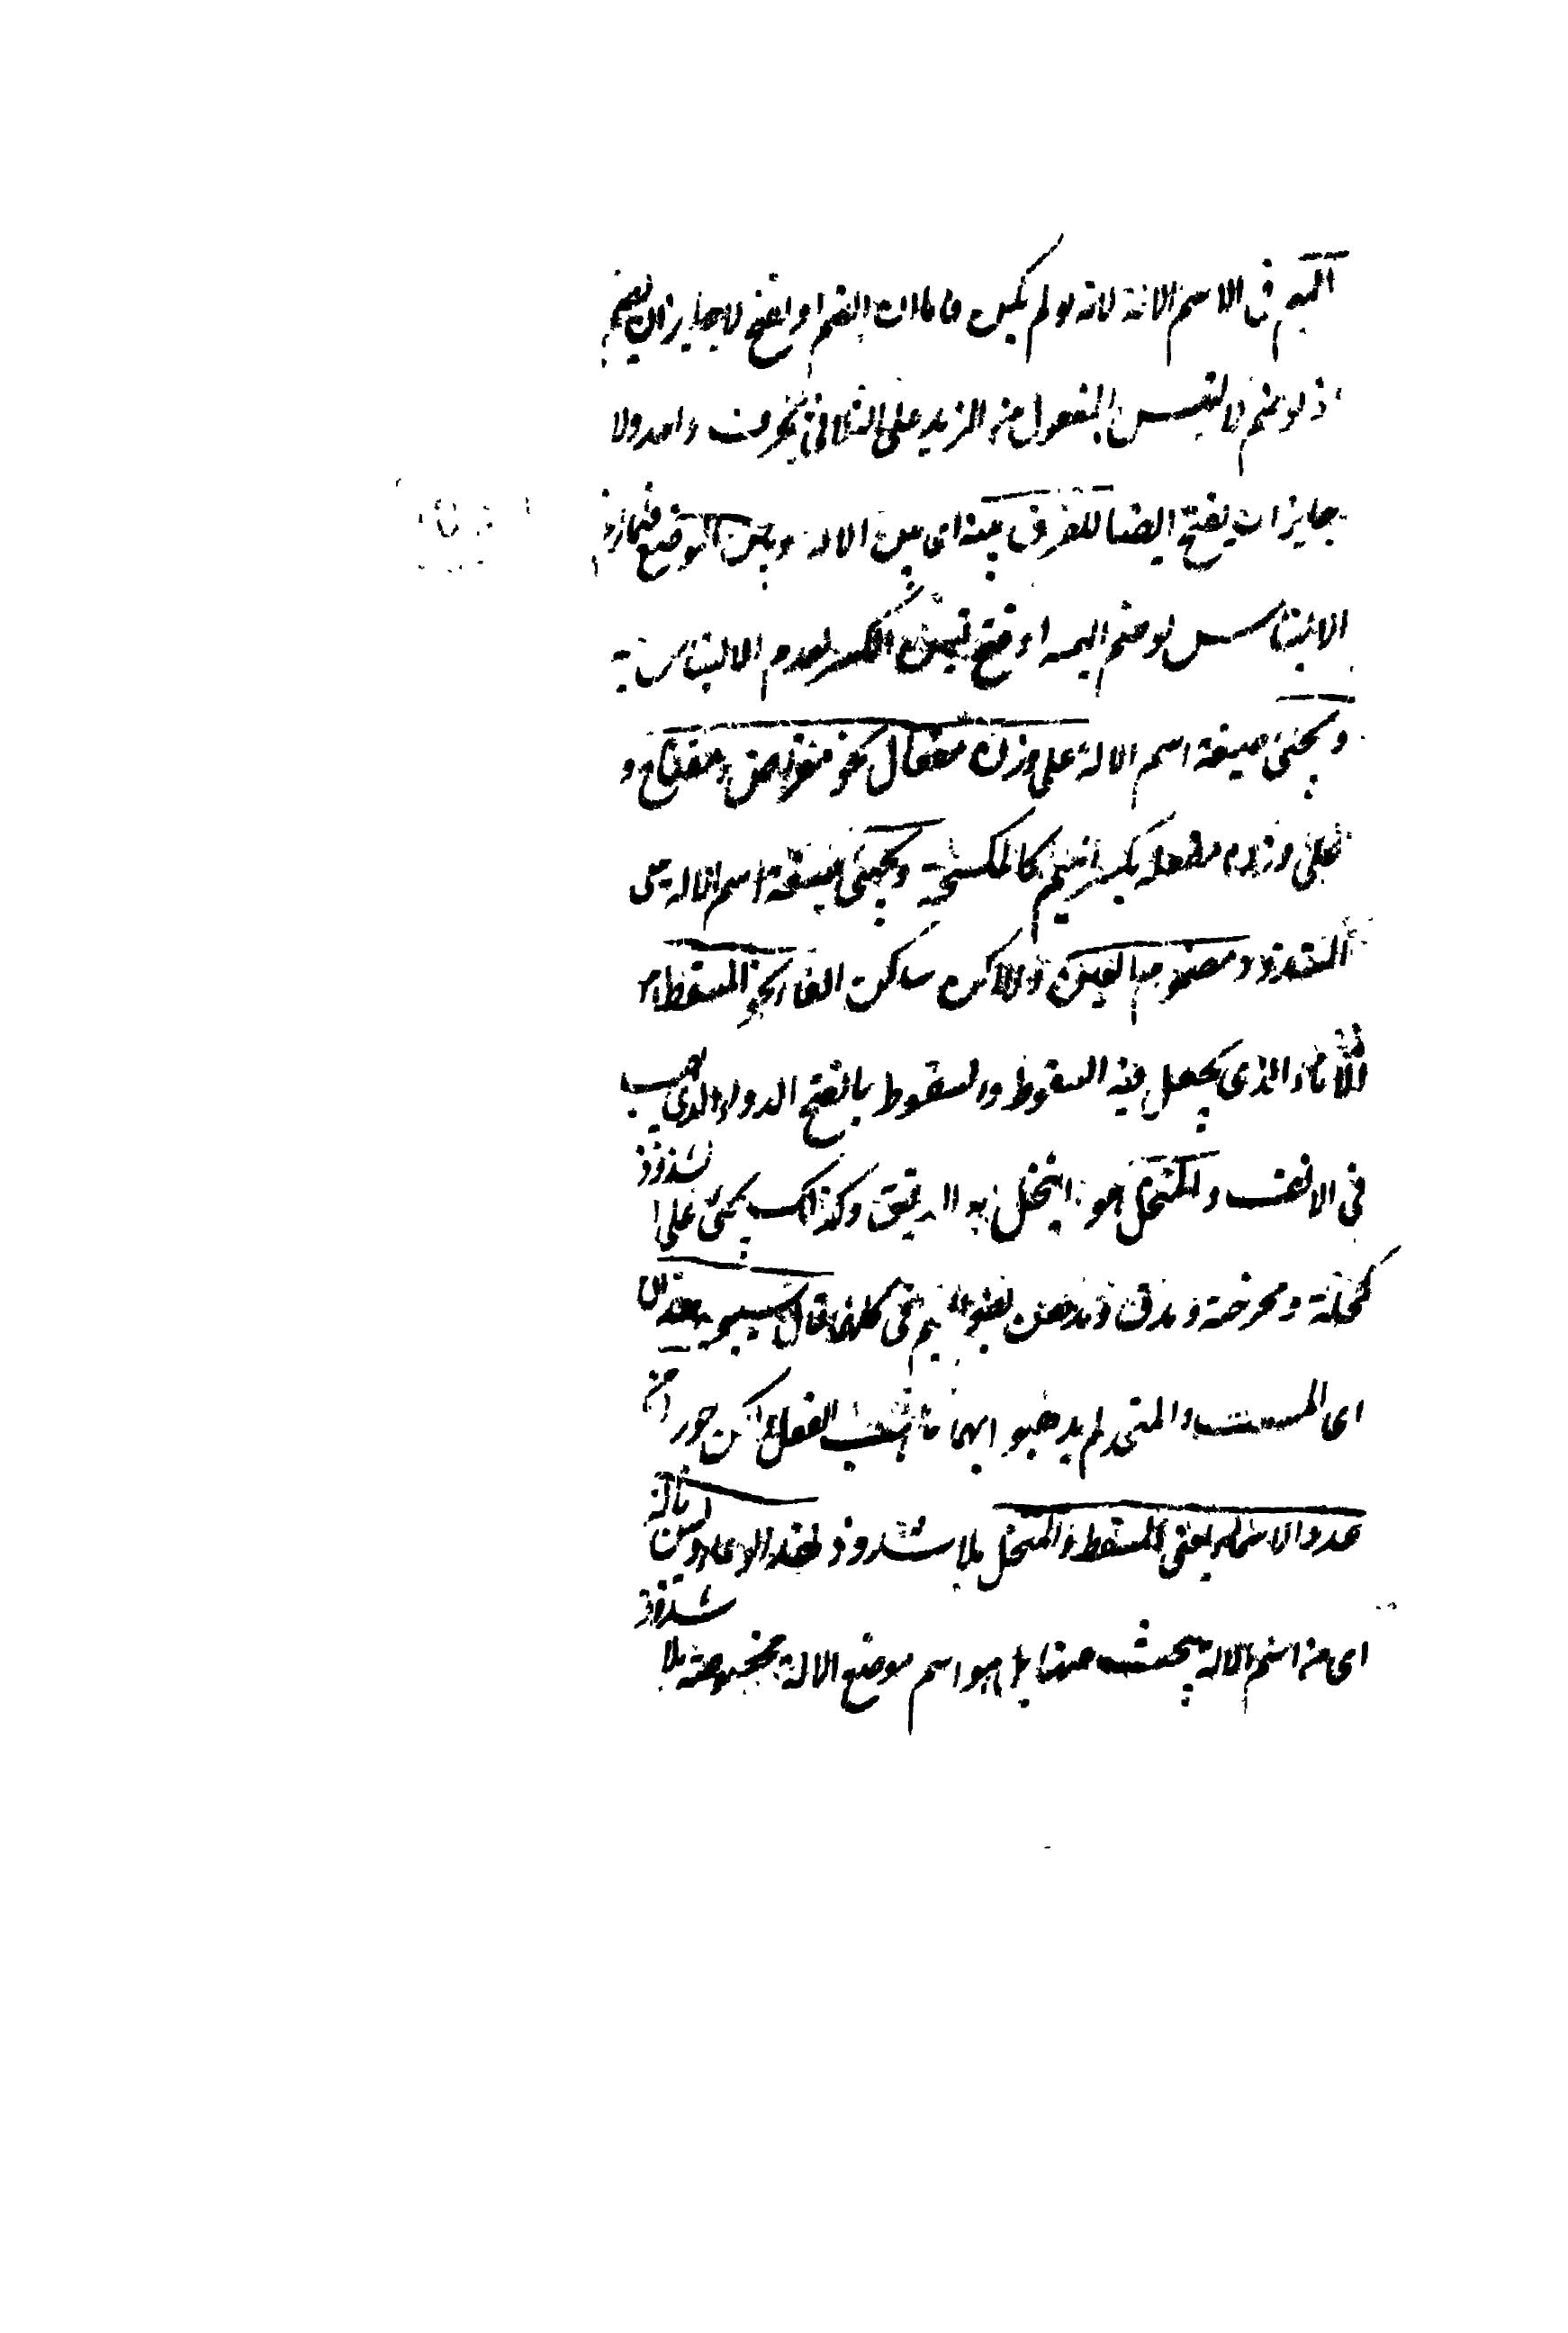 الميم في الاسم الالة لانه لو لم يكسر فاما ان يضم او يفتح لا جايز ان يضم
اذ لو ضم لالتبس بالمفعول من المزيد على الثلاثي بحرف واحد ولا
جايز ان يفتح ايضا للفرق بينه اى بين الالة وبين الموضع فلما لزم
الالتباس لو ضم الميم او فتح تعين الكسر لعدم الالتباس به
ويجئ صيغة اسم الالة على وزن مفعال نحو مقراض ومفتاح و
على وزن مفعلة بكسر الميم كالمكسحة ويجئ صيغة اسم الالة على
الشذوذ مضموم العين والميم ساكن الفاء نحو المسقط
للاناء الذى يجعل فيه السقوط والسقوط بالفتح الدواء الذى يصب
في الانف والمنخل هو ما ينخل به الدقيق وكذلك يجئ على الشذوذ
مكحلة ومحرضة ومدق ومدهن بضم الميم في كلها قال سيبويه هذان
اى المسقط والمنخل لم يذهبوا بهما مذهب الفعل لكن جعلا اسم
هذه الاسماء يعنى المسقط والمنخل بلا شذوذ لهذه الاوعية وليس بآلة
اى من اسم الالة يبحث عنها بل هو اسم موضع الالة مخصوصة بلا شذوذ